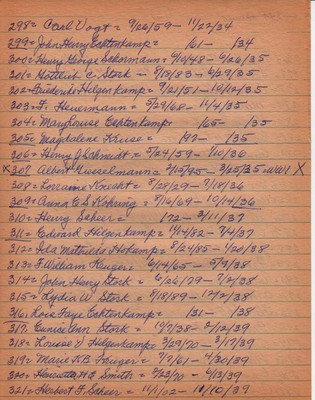 298 = Carl Vogt = 9/26/59 - 11/22/34
299 = John Henry Echtenkamp = /61 - /34
300 = Henry George Sekormann = 9/10/48 - 6/26/35
301 = Gottlieb C. Stork - 9/18/83 - 6/29/35
302 = Friederike Hilgenkamp = 9/21/51 - 10/12/35
303 = F. Heuermann = 5/29/68 - 11/4/35
304 = Mary Louise Echtenkamp /65 - /35
305 = Magdalene Kruse = /47 - /35
306 = Henry J. Schmidt = 5/24/59 - 1/10/36
X 307 Albert Husselmann = 7/15/95 - 3/25/35 WW I X
308 = Lorraine Knecht = 8/28/29 - 7/18/36
309 = Anna C S Rohwing = 7/16/69 - 10/14/36
310 = Henry Scheer = 172 - 3/11/37
311 = Edward Hilgenkamp = 1/14/82 - 7/4/37
312 = Ida Mathilde Hokamp = 8/24/85 - 1/20/38
313 = F. William Kruger = 6/14/65 - 5/3/38
314 = John Henry Stork = 6/26/79 - 7/2/38
315 = Lydia W Stork = 3/18/89 - 12/2/38
316. Rose Faye Echtenkamp = /31 - /38
317. Eunice Ann Stork = 10/7/38 - 2/12/39
318 = Louise D Hilgenkamp = 3/29/70 - 3/17/39
319 = Marie K.B. Kruger = 7/7/61 - 4/30/39
320 = Henrietta H F Smith = 9/23/70 - 6/13/39
321 = Herbert F. Scheer = 11/1/02 - 11/10/39